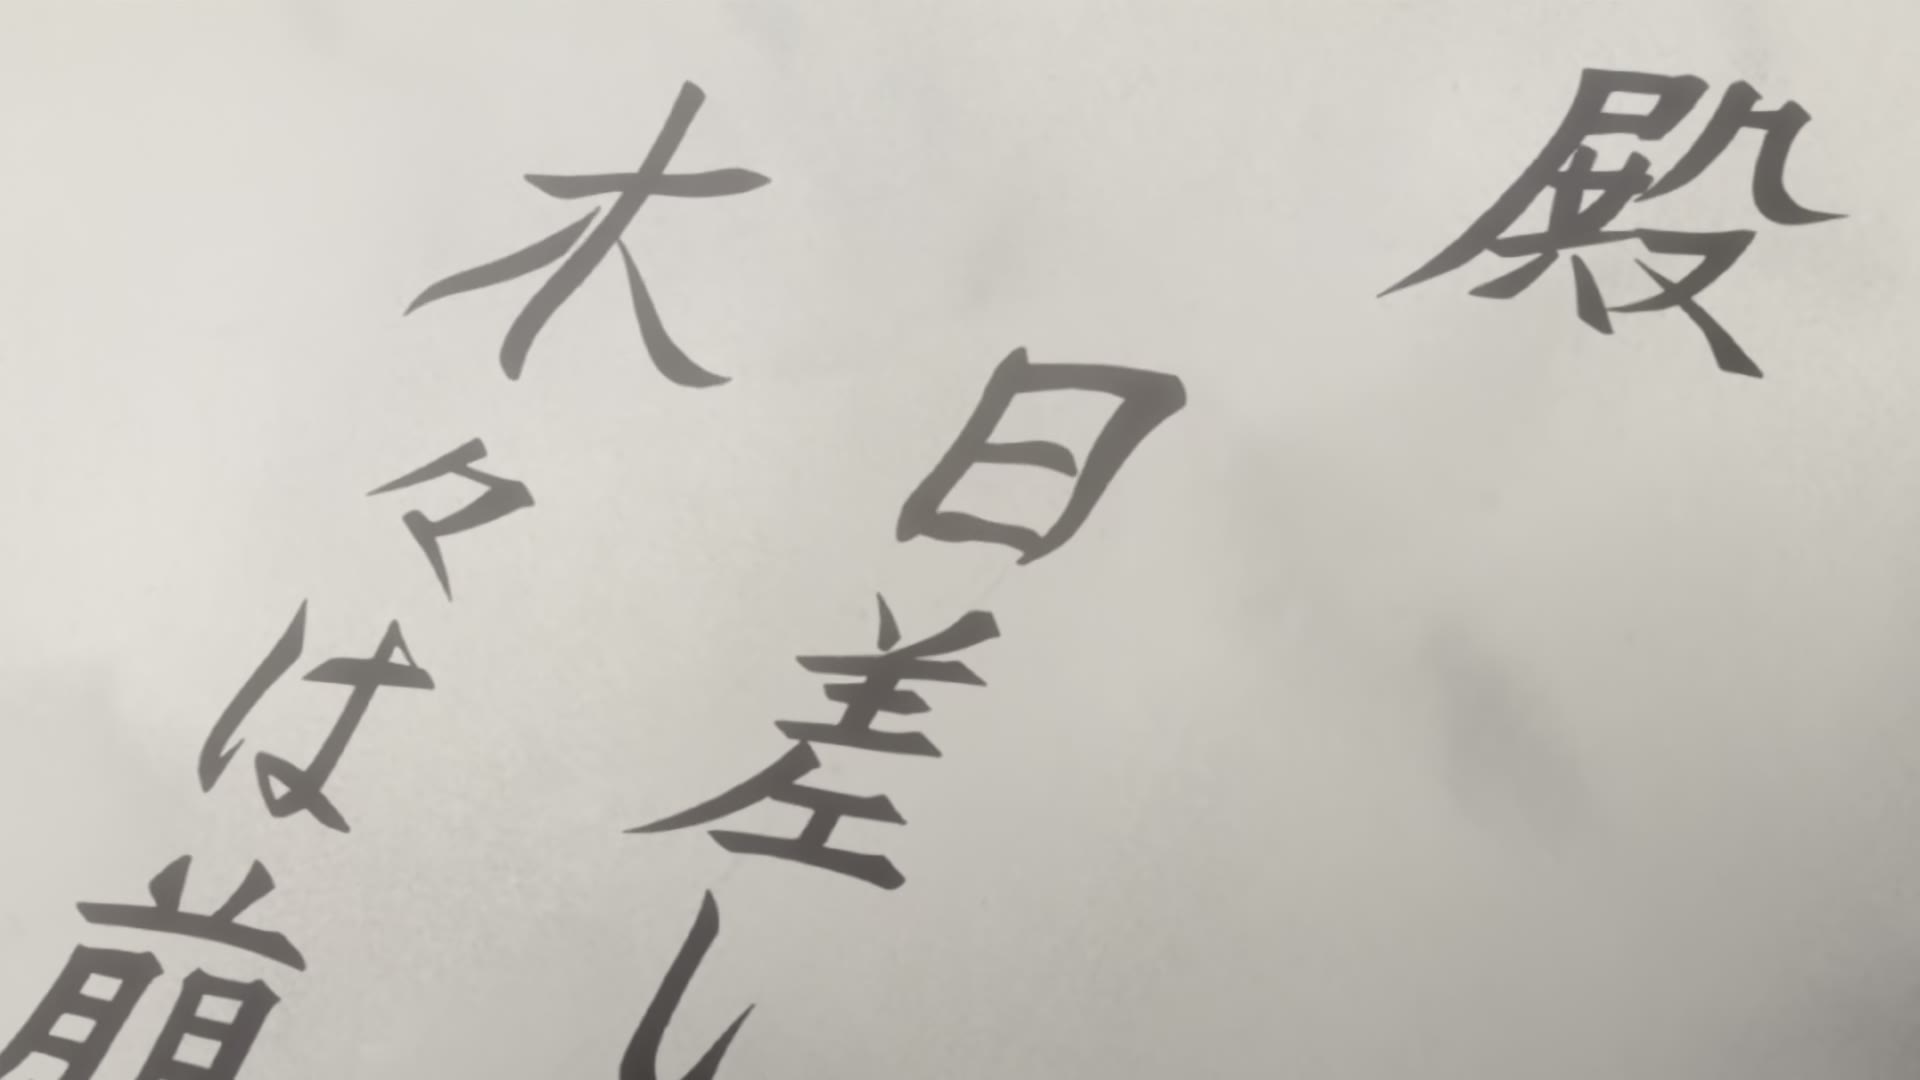 殿
日差し
木々は萠